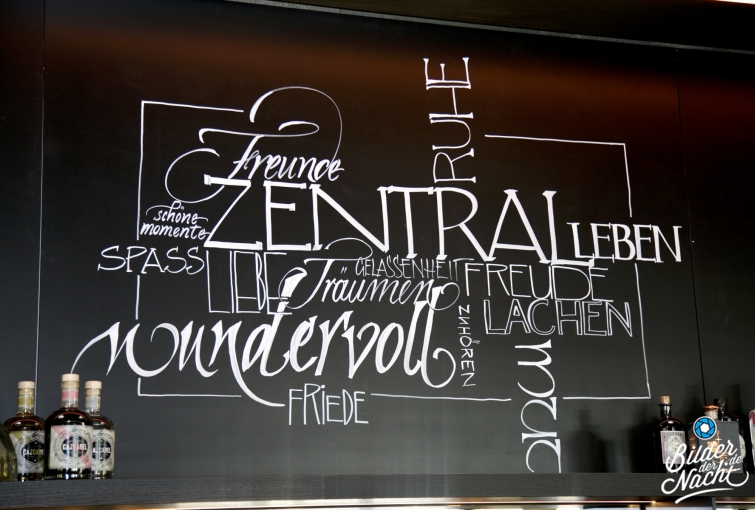 RUHE
Freunde
ZENTRAL
LEBEN
schöne
momente
SPASS
LIEBE
GELASSENHEIT
Träumen
FREUDE
LACHEN
wundervoll
ZUHÖREN
FRIEDE
CAZCABEL
CAZCABEL
Bilder
der
Nacht.de